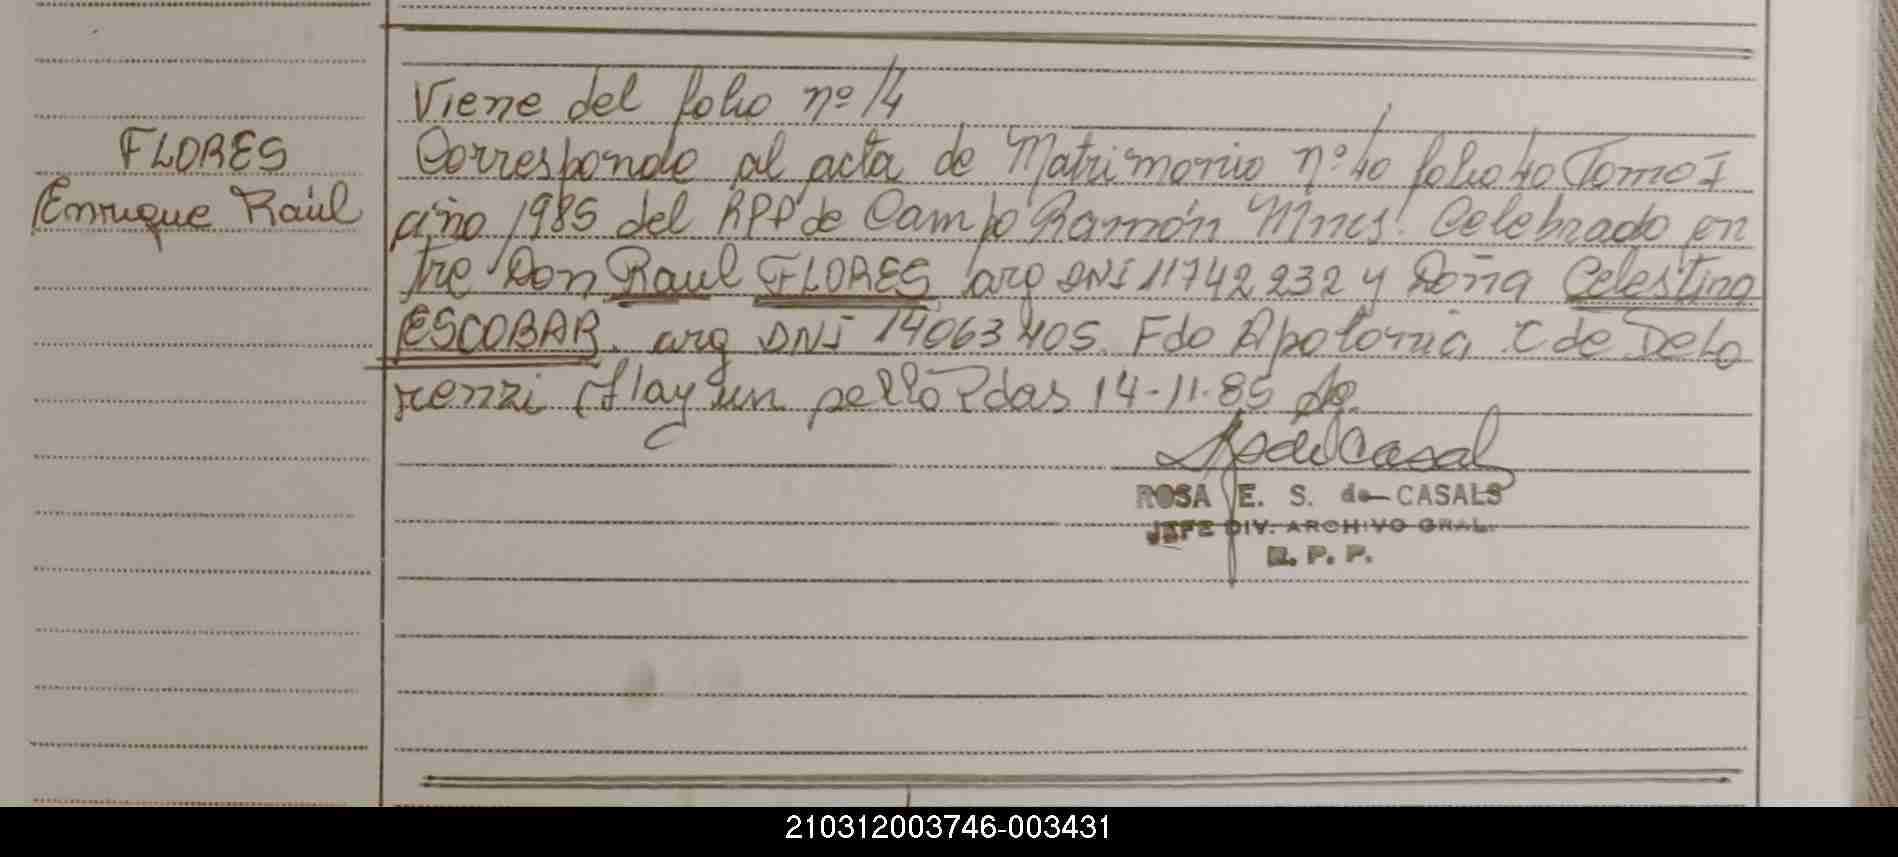 Viene del folio nº 14
FLORES
Enrique Raúl
Corresponde al acta de Matrimonio nº 40 folio 40 Tomo I
año 1985 del RPP de Campo Ramón Mnes. Celebrado en
tre Don Raul FLORES arg DNI 11742232 y Doña Celestina
ESCOBAR. arg DNI 14063405. Fdo Apolonia C de De Lo
renzi Hay un sello Pdas 14-11-85
ROSA E. S. de CASALS
JEFE DIV. ARCHIVO GRAL.
R. P. P.
210312003746-003431